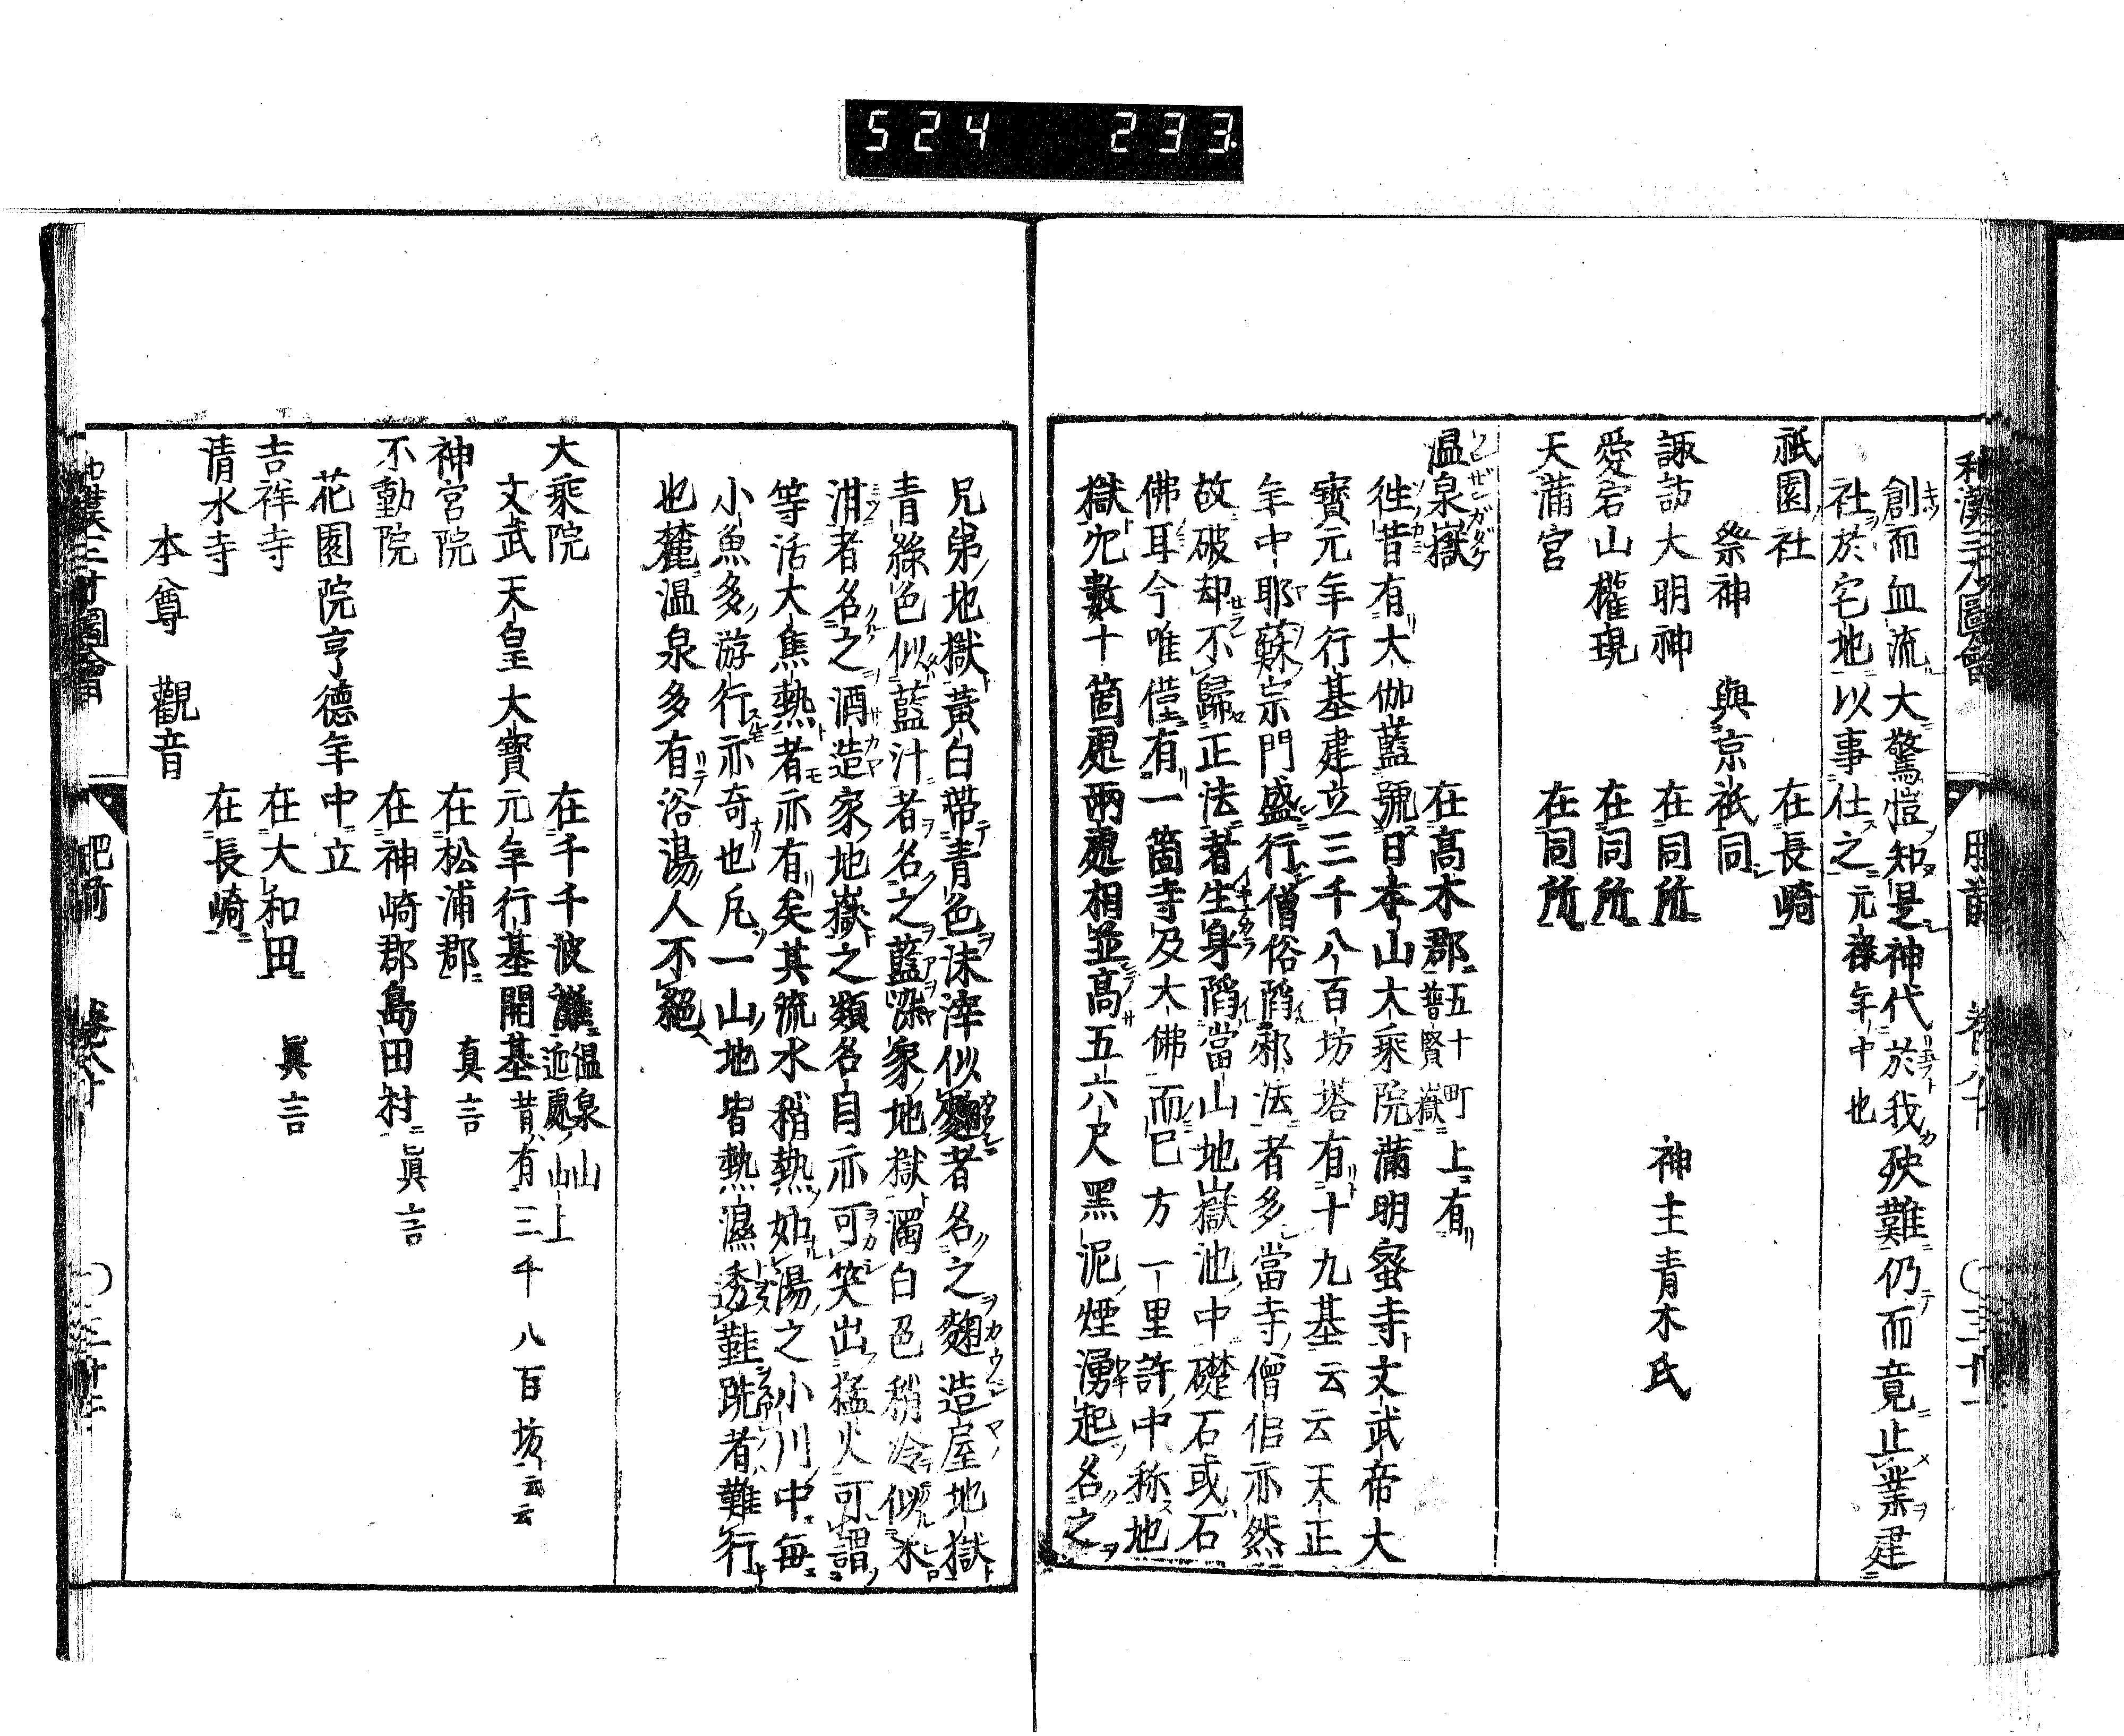 524 233
和漢三才圖會 肥前 卷八十 〇三十一
創而血流大驚愷知是神代於我殃難仍而竟止業建
社於宅地以事仕之元祿年中也
祇園社 在長崎
祭神 與京祇同
諏訪大明神 在同所 神主青木氏
愛宕山權現 在同所
天滿宮 在同所
温泉嶽 在高木郡五十町上有
普賢嶽
徃昔有大伽藍號日本山大乘院滿明蜜寺文武帝大
寳元年行基建立三千八百坊塔有十九基云云天正
年中耶蘇宗門盛行僧俗陷邪法者多當寺僧侶亦然
故破却不歸正法者生身陷當山地嶽池中礎石或石
佛耳今唯僅有一箇寺及大佛而已方一里許中称地
獄穴數十箇處兩處相並高五六尺黑泥煙湧起名之
兄弟地獄黃白帶青色沫滓似麴者名之麴造屋地獄
青綠色似藍汁者名之藍染家地獄濁白色稍冷似米
泔者名之酒造家地嶽之類名目亦可笑出猛火可謂
等活大焦熱者亦有矣其流水稍熱如湯之小川中每
小魚多游行亦奇也凡一山地皆熱濕透鞋跣者難行
也麓温泉多有浴湯人不絕
大乘院 在千千波灘温泉山
近處山上
文武天皇大寳元年行基開基昔有三千八百坂云云
神宮院 在松浦郡 真言
不動院 在神崎郡島田村 眞言
花園院亨德年中立
吉祥寺 在大和田 眞言
清水寺 在長崎
本尊 觀音
和漢三才圖會 肥前 卷八十